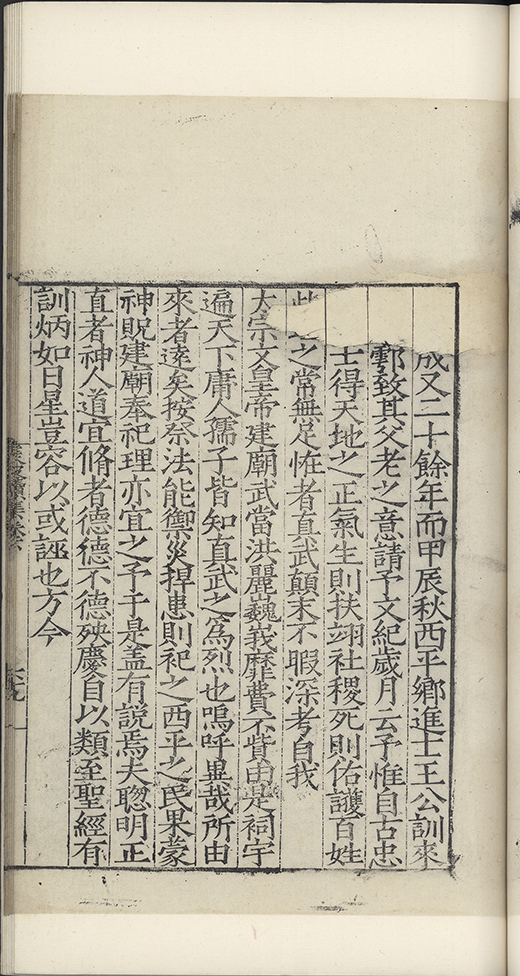 成又二十餘年而甲辰秋西平鄉進士王公訓來
鄠致其父老之意請予文紀歲月云予惟自古忠
士得天地之正氣生則扶翊社稷死則佑護百姓
之常無足恠者真武顛末不暇深考自我
太宗文皇帝建廟武當洪麗巍峩靡費不貲由是祠宇
遍天下庸人孺子皆知真武之為烈也嗚呼異哉所由
來者遠矣按祭法能禦災捍患則祀之西平之民果蒙
神貺建廟奉祀理亦宜之予于是盖有說焉夫聦明正
直者神人道宜脩者德德不德殃慶自以類至聖經有
訓炳如日星豈容以或誣也方今